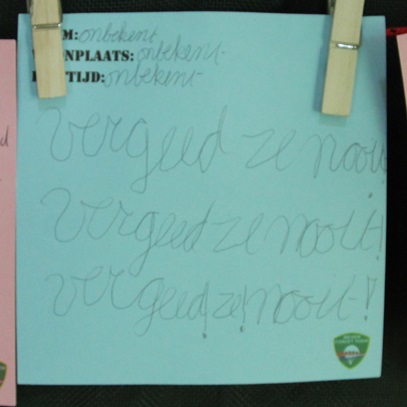 M: onbekent
ONPLAATS: onbekent
TIJD: onbekent
vergeed ze nooit
vergeed ze nooit!
vergeed! ze! nooit!